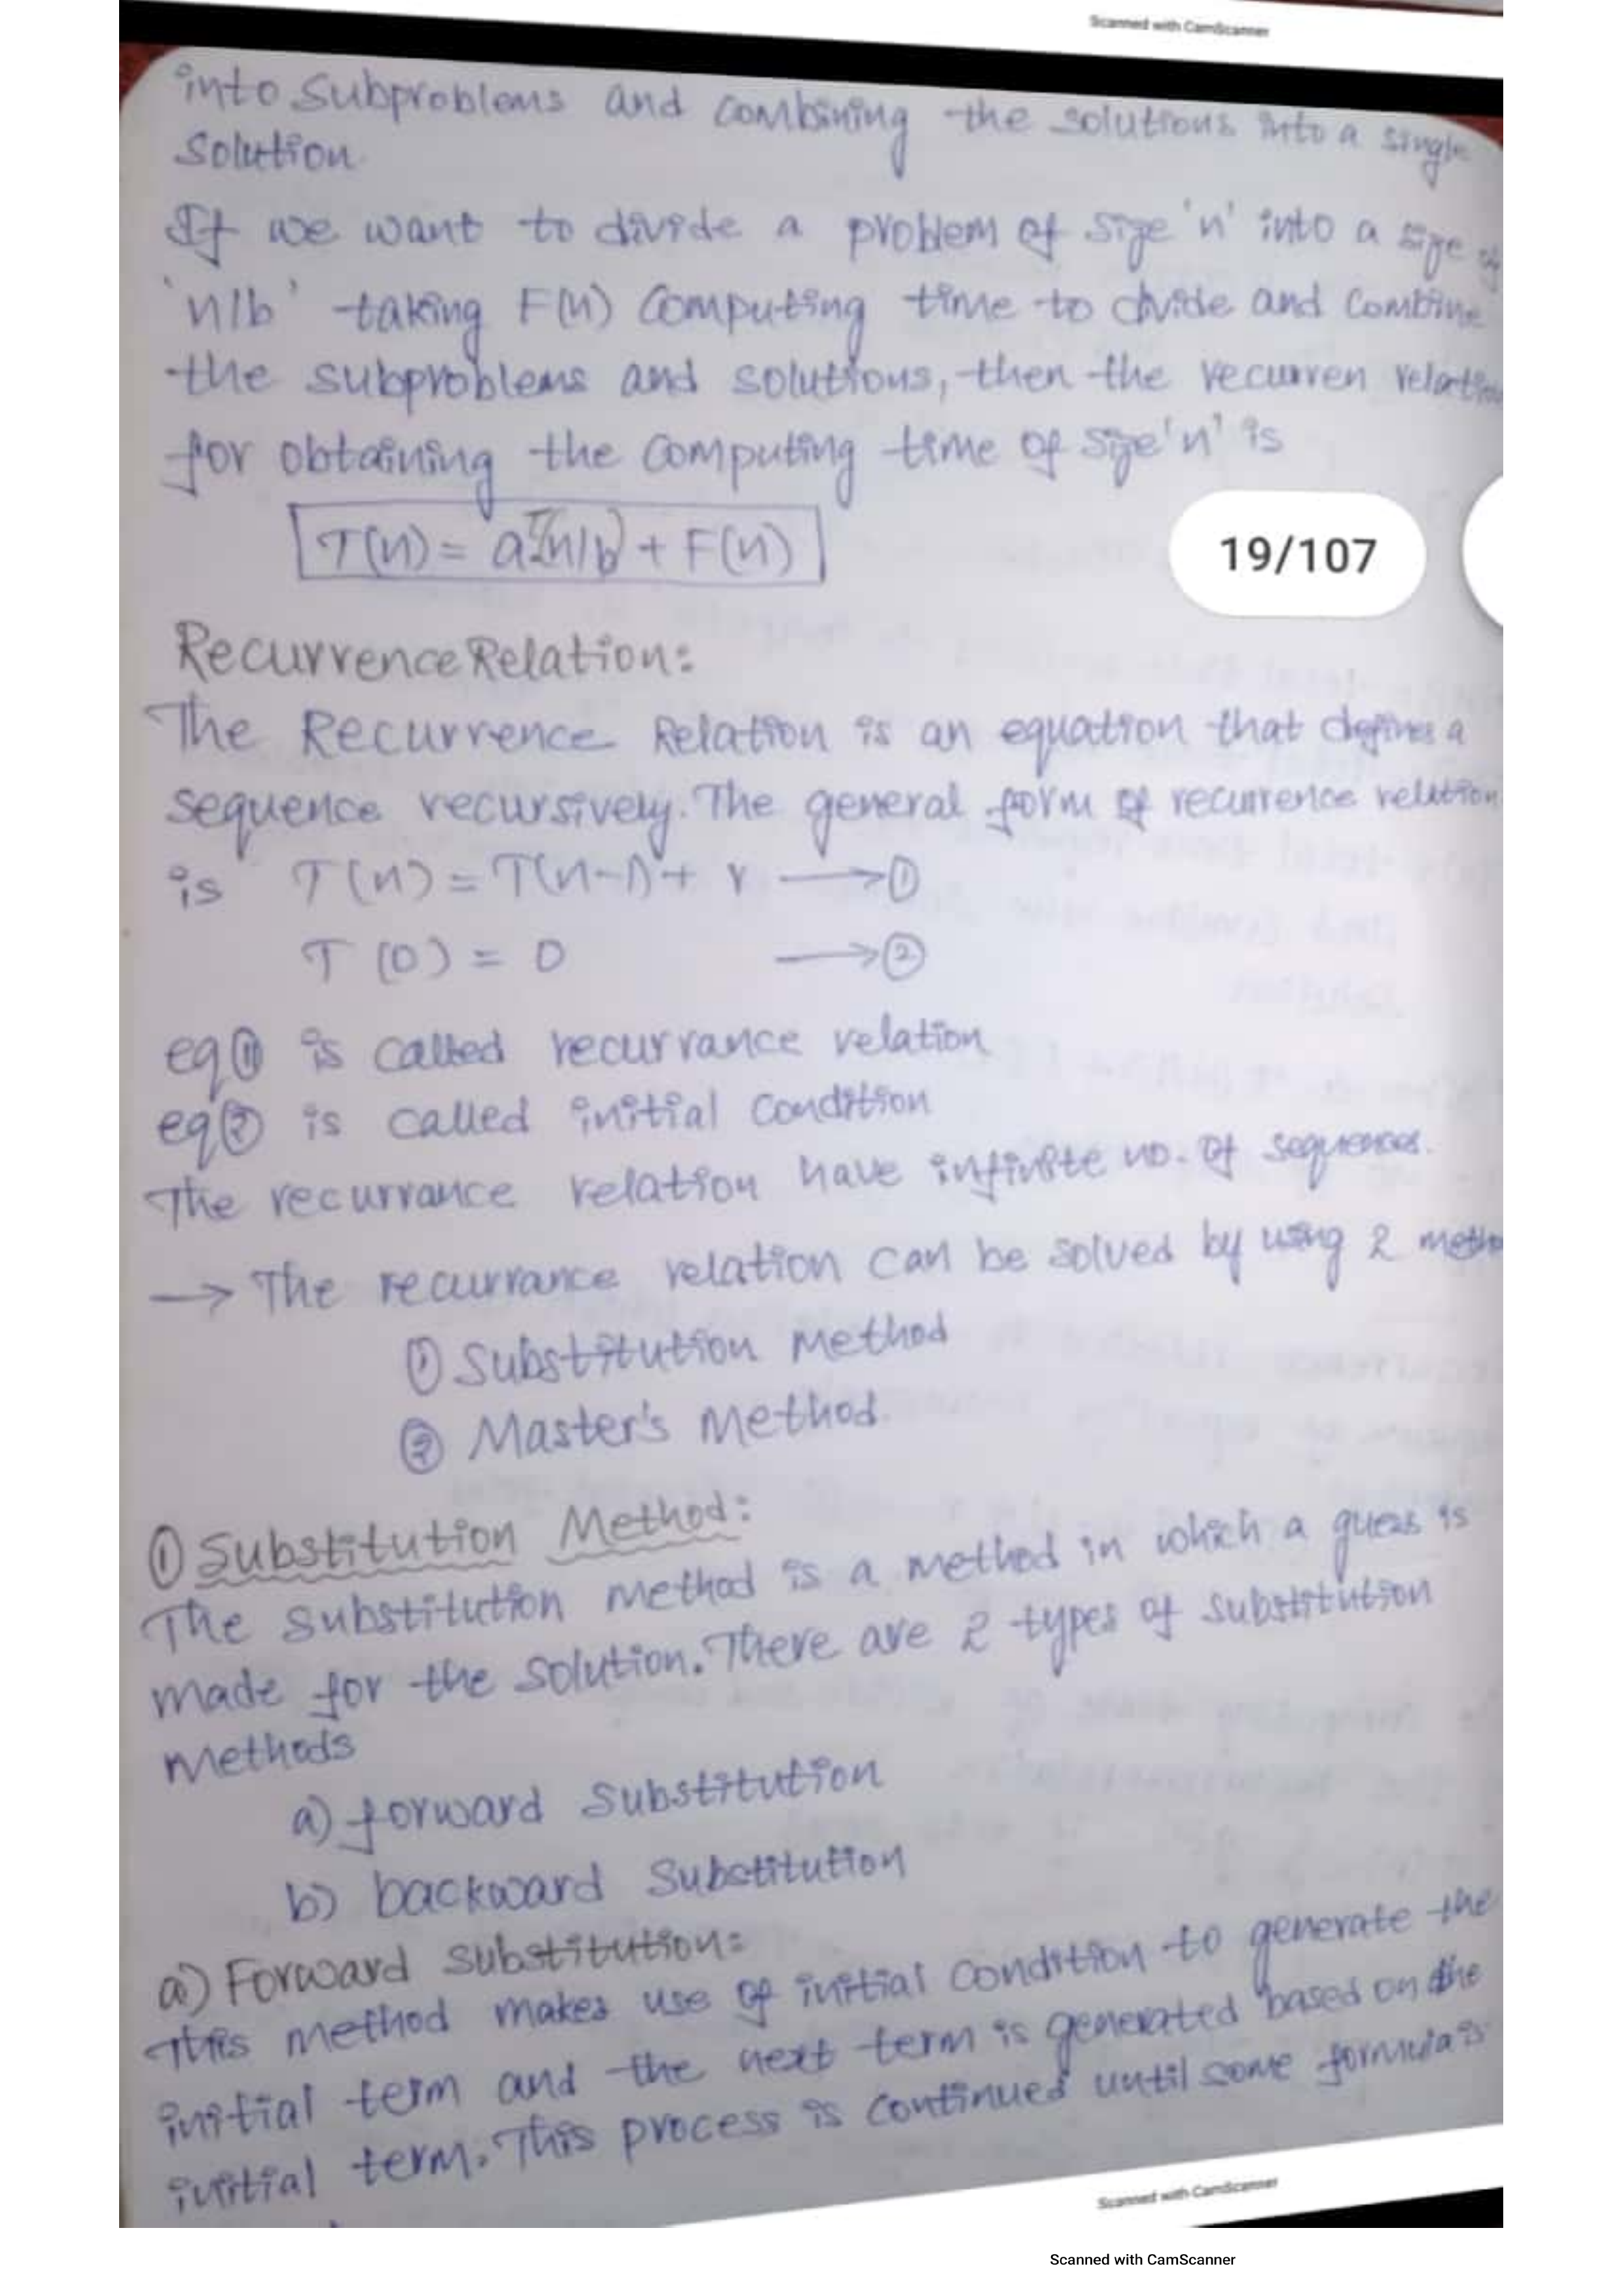 Scanned with CamScanner
into subproblems and combining the solutions into a single
Solution
If we want to divide a problem of size 'n' into a size of
'n/b' taking F(n) computing time to divide and combine
the subproblems and solutions, then the recurren relation
for obtaining the computing time of size 'n' is
T(n) = aT(n/b) + F(n)
19/107
Recurrence Relation:
The Recurrence Relation is an equation that defines a
sequence recursively. The general form of recurrence relation
is T(n) = T(n-1) + r → ①
T(0) = 0 → ②
eq① is called recurrance relation
eq② is called initial condition
The recurrance relation have infinite no. of sequences.
→ The recurrance relation can be solved by using 2 metho
① Substitution Method
② Master's Method.
① Substitution Method:
The substitution method is a method in which a guess is
made for the solution. There are 2 types of substitution
methods
a) forward substitution
b) backward substitution
a) Forward substitution:
This method makes use of initial condition to generate the
initial term and the next term is generated based on the
initial term. This process is continued until some formula is
Scanned with CamScanner
Scanned with CamScanner